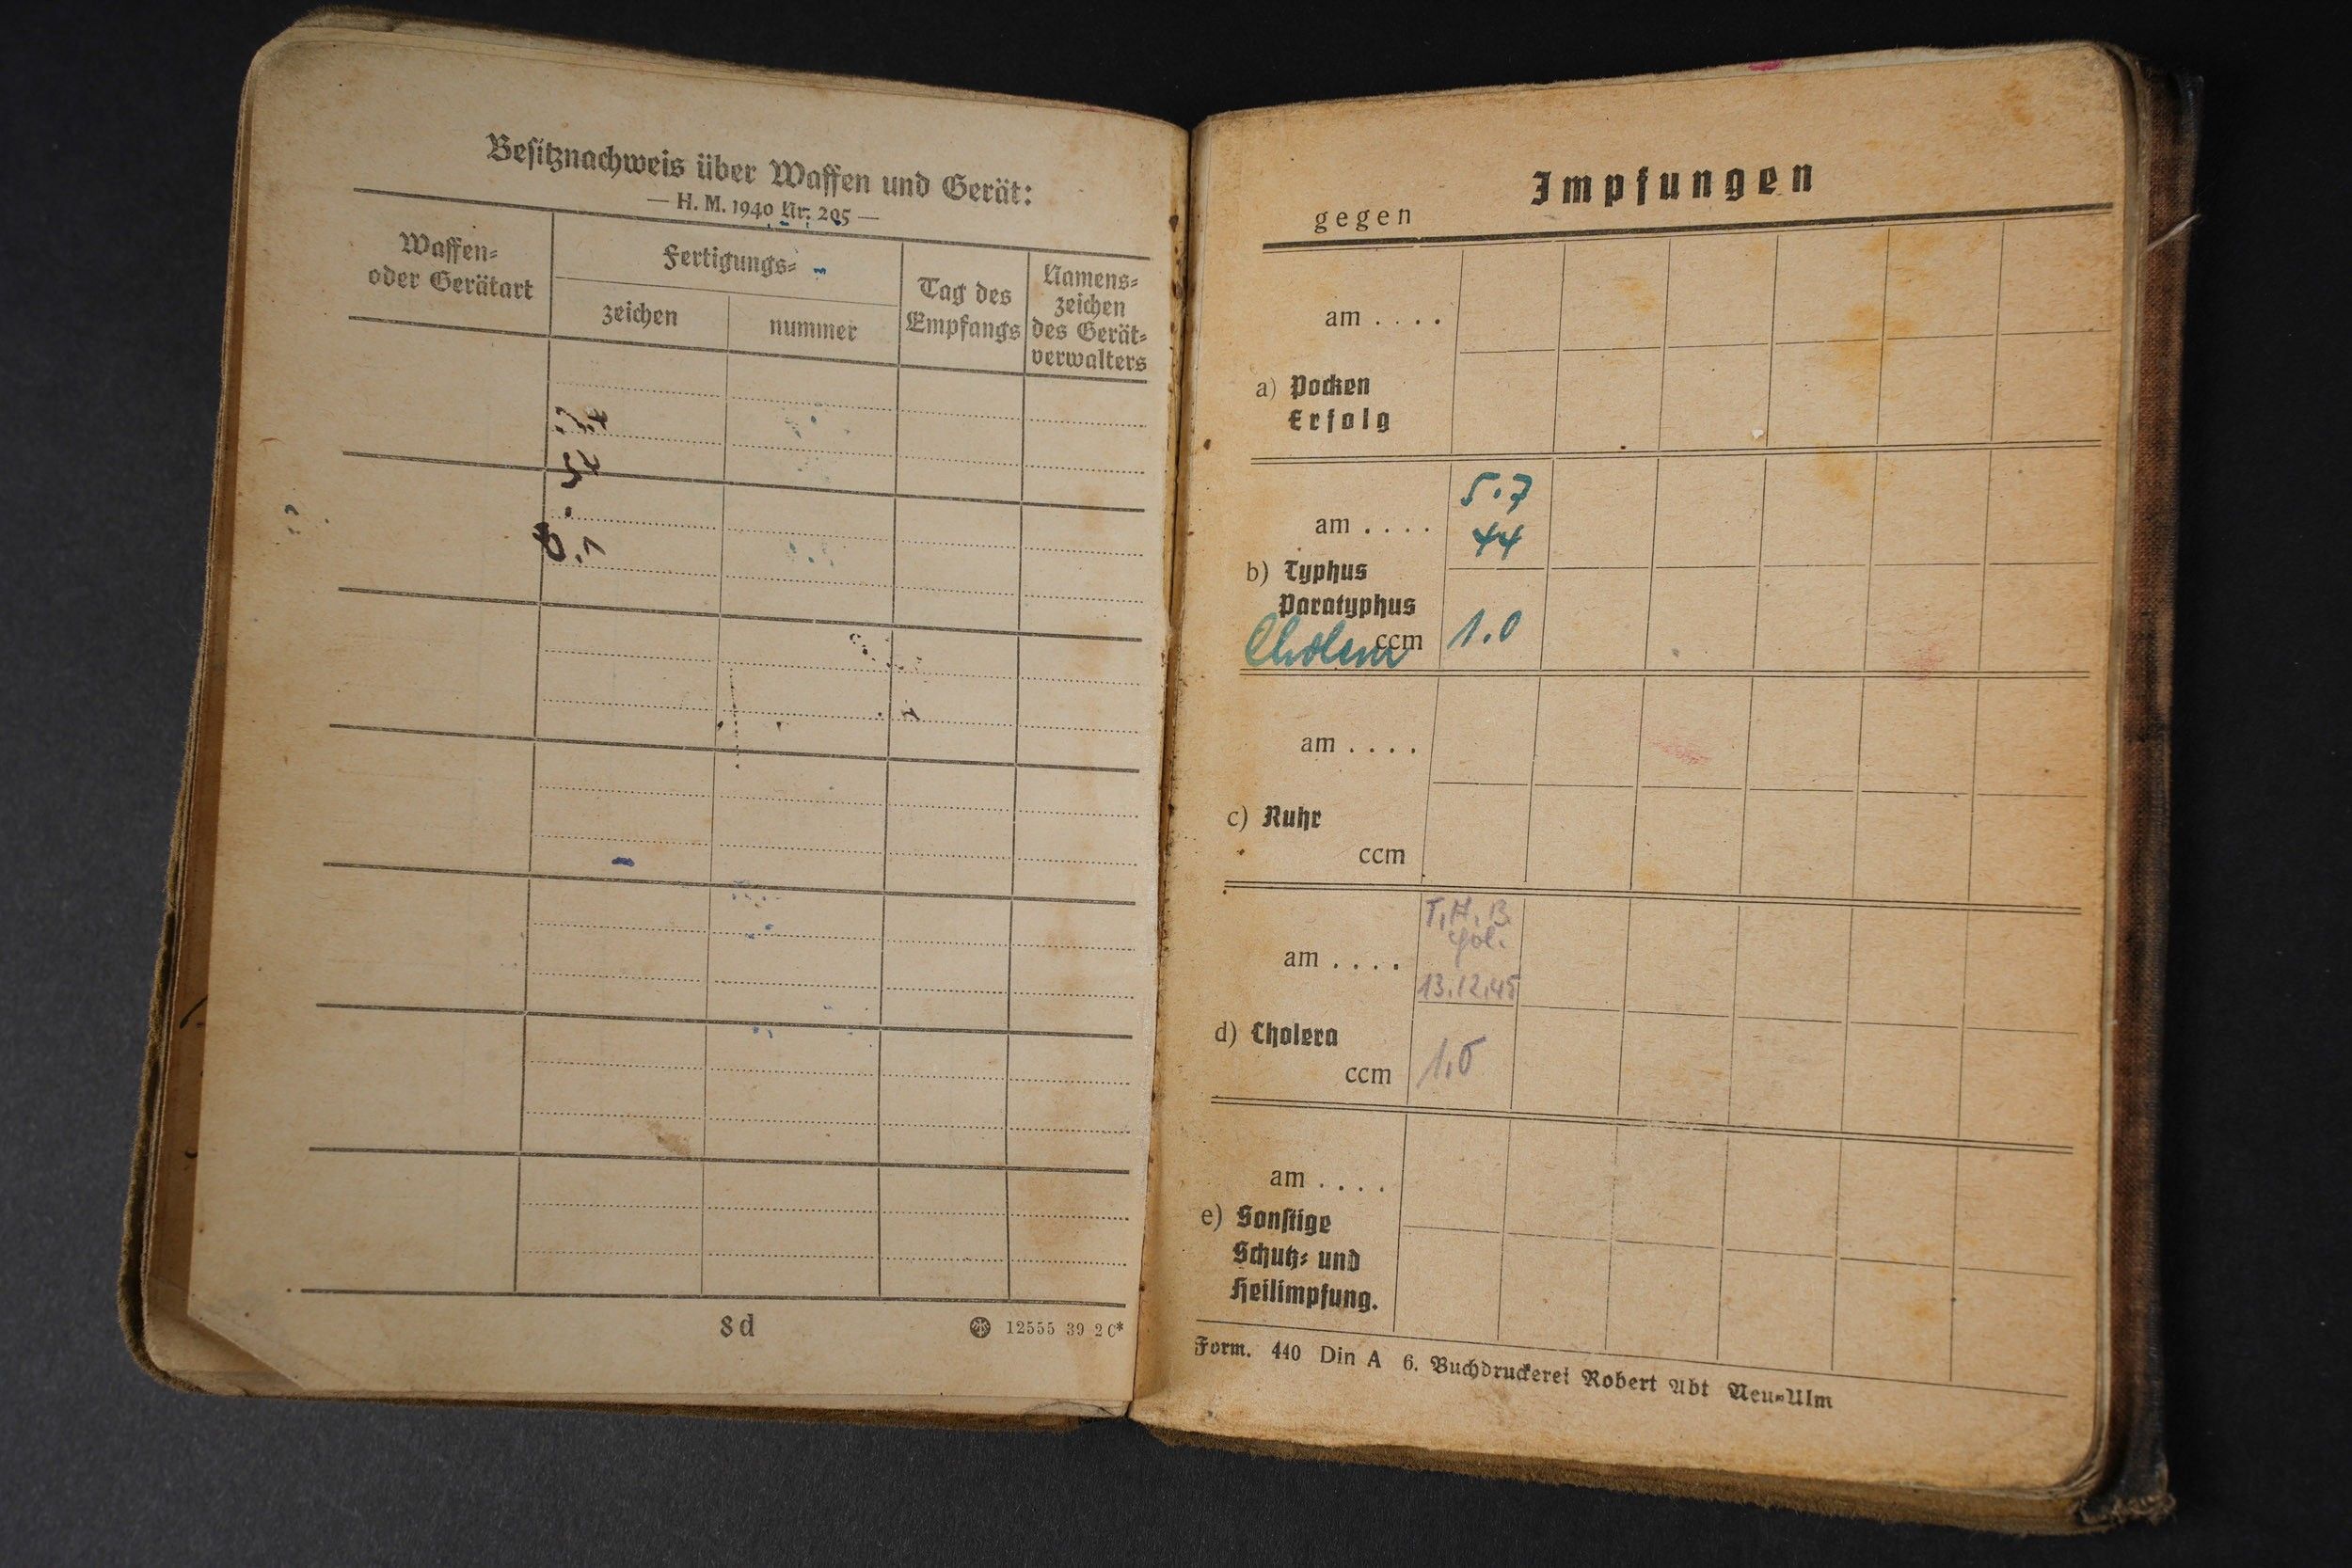 Besitznachweis über Waffen und Gerät:
— H. M. 1940 Nr. 205 —
Waffen-
oder Gerätart
Fertigungs-
zeichen
nummer
Tag des
Empfangs
Namens-
zeichen
des Gerät-
verwalters
8d
12555 39 2C*
Impfungen
gegen
am . . . .
a) Pocken
Erfolg
am . . . .
5.7
44
b) Typhus
Paratyphus
Cholera ccm
1.0
am . . . .
c) Ruhr
ccm
am . . . .
13.12.45
d) Cholera
ccm
am . . . .
e) Sonstige
Schutz- und
Heilimpfung.
Form. 440 Din A 6. Buchdruckerei Robert Abt Neu-Ulm